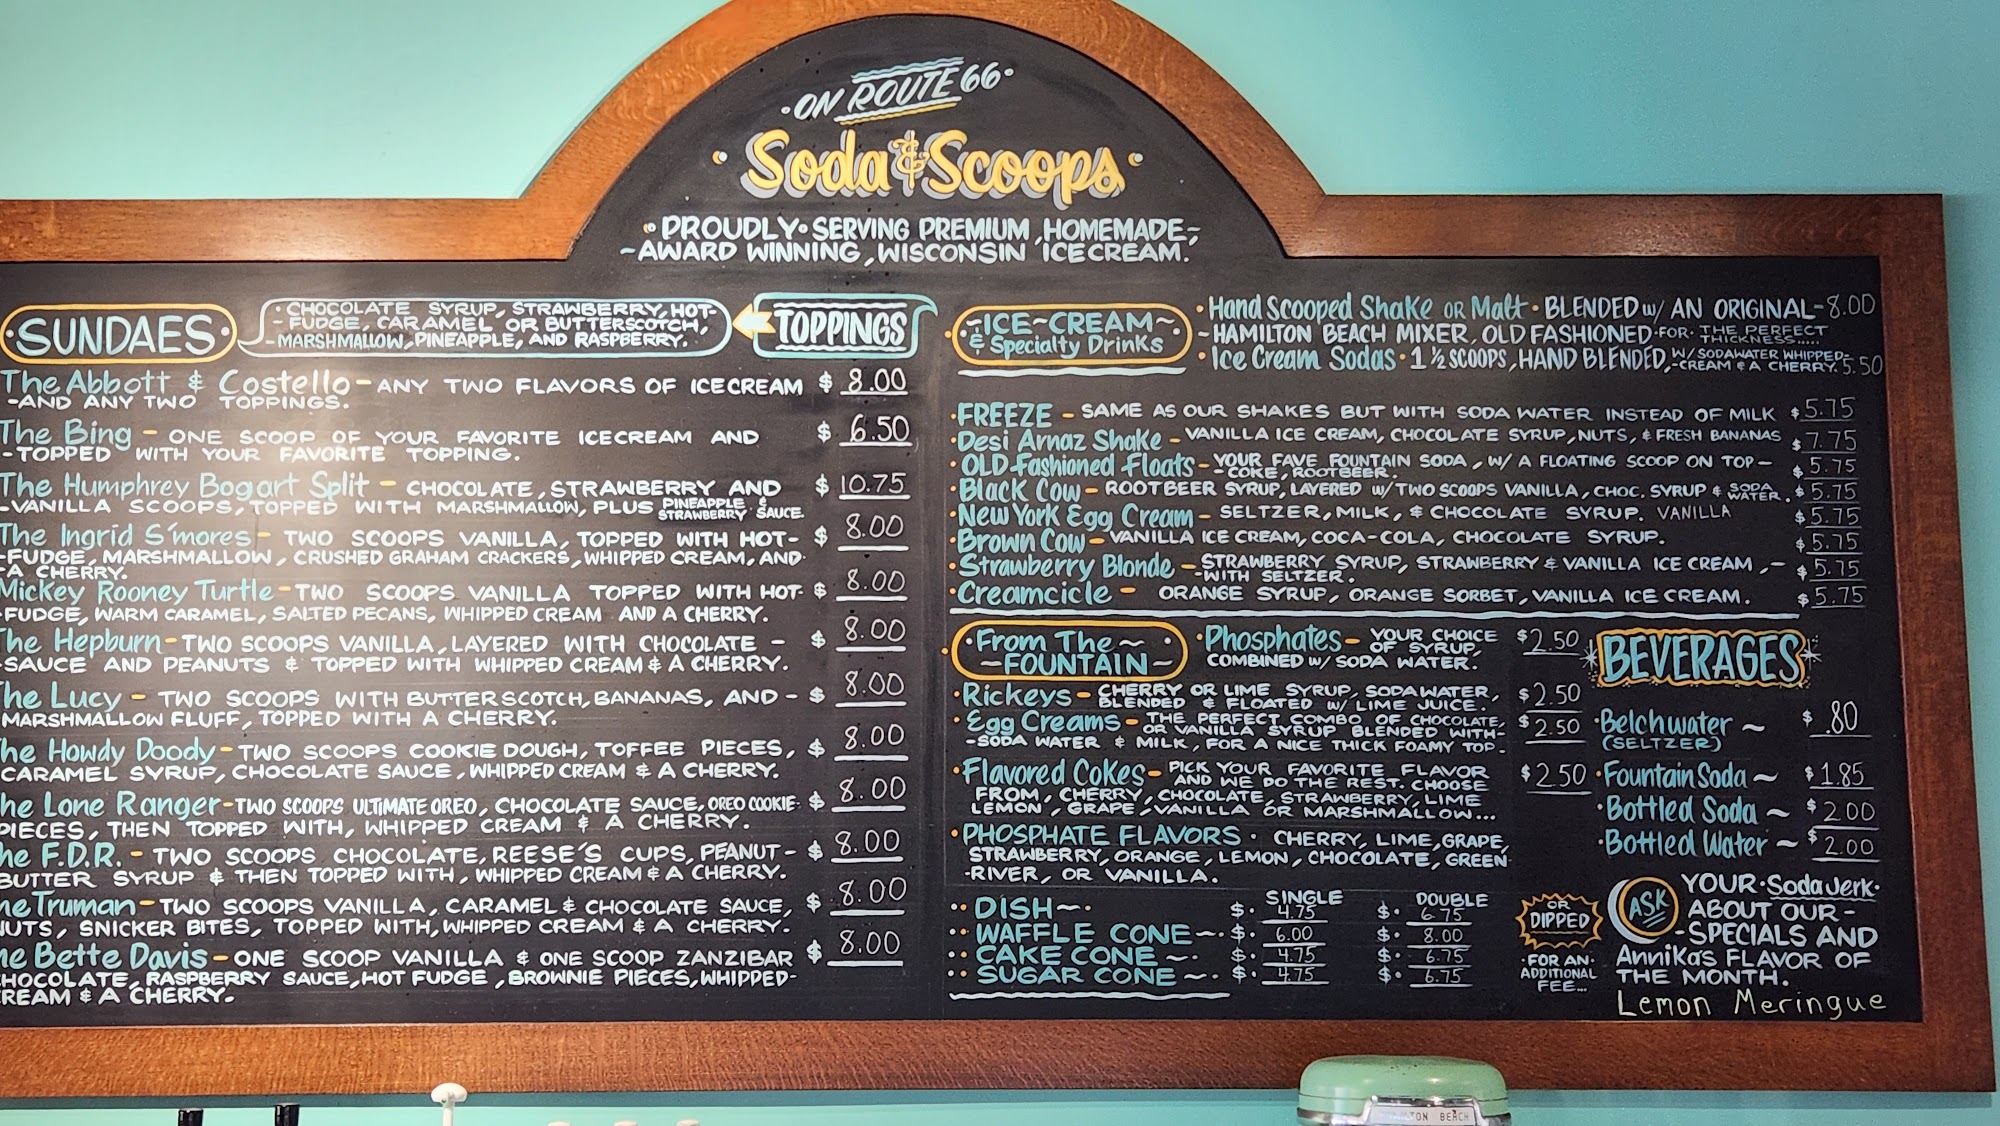 ·ON ROUTE 66·
·Soda & Scoops·
·PROUDLY·SERVING PREMIUM, HOMEMADE,-
-AWARD WINNING, WISCONSIN ICE CREAM.
·SUNDAES·
·CHOCOLATE SYRUP, STRAWBERRY, HOT-
-FUDGE, CARAMEL OR BUTTERSCOTCH,
-MARSHMALLOW, PINEAPPLE, AND RASPBERRY.
TOPPINGS
The Abbott & Costello - ANY TWO FLAVORS OF ICE CREAM $ 8.00
-AND ANY TWO TOPPINGS.
The Bing - ONE SCOOP OF YOUR FAVORITE ICE CREAM AND $ 6.50
-TOPPED WITH YOUR FAVORITE TOPPING.
The Humphrey Bogart Split - CHOCOLATE, STRAWBERRY AND $ 10.75
-VANILLA SCOOPS, TOPPED WITH MARSHMALLOW, PLUS PINEAPPLE & STRAWBERRY SAUCE.
The Ingrid S'mores - TWO SCOOPS VANILLA, TOPPED WITH HOT- $ 8.00
-FUDGE, MARSHMALLOW, CRUSHED GRAHAM CRACKERS, WHIPPED CREAM, AND
-A CHERRY.
Mickey Rooney Turtle - TWO SCOOPS VANILLA TOPPED WITH HOT- $ 8.00
FUDGE, WARM CARAMEL, SALTED PECANS, WHIPPED CREAM AND A CHERRY.
The Hepburn - TWO SCOOPS VANILLA, LAYERED WITH CHOCOLATE - $ 8.00
-SAUCE AND PEANUTS & TOPPED WITH WHIPPED CREAM & A CHERRY.
The Lucy - TWO SCOOPS WITH BUTTERSCOTCH, BANANAS, AND - $ 8.00
MARSHMALLOW FLUFF, TOPPED WITH A CHERRY.
he Howdy Doody - TWO SCOOPS COOKIE DOUGH, TOFFEE PIECES, $ 8.00
CARAMEL SYRUP, CHOCOLATE SAUCE, WHIPPED CREAM & A CHERRY.
he Lone Ranger - TWO SCOOPS ULTIMATE OREO, CHOCOLATE SAUCE, OREO COOKIE- $ 8.00
PIECES, THEN TOPPED WITH, WHIPPED CREAM & A CHERRY.
he F.D.R. - TWO SCOOPS CHOCOLATE, REESE'S CUPS, PEANUT- $ 8.00
BUTTER SYRUP & THEN TOPPED WITH, WHIPPED CREAM & A CHERRY.
he Truman - TWO SCOOPS VANILLA, CARAMEL & CHOCOLATE SAUCE, $ 8.00
NUTS, SNICKER BITES, TOPPED WITH, WHIPPED CREAM & A CHERRY.
he Bette Davis - ONE SCOOP VANILLA & ONE SCOOP ZANZIBAR $ 8.00
HOCOLATE, RASPBERRY SAUCE, HOT FUDGE, BROWNIE PIECES, WHIPPED-
REAM & A CHERRY.
·ICE~CREAM~
& Specialty Drinks
·Hand Scooped Shake OR Malt·BLENDED W/ AN ORIGINAL- 8.00
-HAMILTON BEACH MIXER, OLD FASHIONED·FOR·THE PERFECT THICKNESS.....
·Ice Cream Sodas·1 1/2 SCOOPS, HAND BLENDED, W/ SODAWATER WHIPPED-CREAM & A CHERRY. 5.50
·FREEZE - SAME AS OUR SHAKES BUT WITH SODA WATER INSTEAD OF MILK $5.75
·Desi Arnaz Shake - VANILLA ICE CREAM, CHOCOLATE SYRUP, NUTS, & FRESH BANANAS $7.75
·OLD Fashioned Floats - YOUR FAVE FOUNTAIN SODA, W/ A FLOATING SCOOP ON TOP - $5.75
COKE, ROOTBEER.
·Black Cow - ROOTBEER SYRUP, LAYERED W/ TWO SCOOPS VANILLA, CHOC. SYRUP & SODA WATER. $5.75
·New York Egg Cream - SELTZER, MILK, & CHOCOLATE SYRUP. VANILLA $5.75
·Brown Cow - VANILLA ICE CREAM, COCA-COLA, CHOCOLATE SYRUP. $5.75
·Strawberry Blonde - STRAWBERRY SYRUP, STRAWBERRY & VANILLA ICE CREAM, - $5.75
-WITH SELTZER.
·Creamcicle - ORANGE SYRUP, ORANGE SORBET, VANILLA ICE CREAM. $5.75
·From The~
~FOUNTAIN~
·Phosphates - YOUR CHOICE OF SYRUP, $2.50
COMBINED W/ SODA WATER.
·Rickeys - CHERRY OR LIME SYRUP, SODAWATER, $2.50
BLENDED & FLOATED W/ LIME JUICE.
·Egg Creams - THE PERFECT COMBO OF CHOCOLATE, $2.50
OR VANILLA SYRUP BLENDED WITH-
-SODA WATER & MILK, FOR A NICE THICK FOAMY TOP.
·Flavored Cokes - PICK YOUR FAVORITE FLAVOR $2.50
AND WE DO THE REST. CHOOSE
FROM, CHERRY, CHOCOLATE, STRAWBERRY, LIME
LEMON, GRAPE, VANILLA OR MARSHMALLOW...
·PHOSPHATE FLAVORS · CHERRY, LIME, GRAPE,
STRAWBERRY, ORANGE, LEMON, CHOCOLATE, GREEN-
-RIVER, OR VANILLA.
SINGLE DOUBLE
··DISH~· $·4.75 $·6.75
··WAFFLE CONE~·$·6.00 $·8.00
··CAKE CONE~·$·4.75 $·6.75
··SUGAR CONE~·$·4.75 $·6.75
BEVERAGES
·Belchwater ~ $ .80
(SELTZER)
·Fountain Soda ~ $1.85
·Bottled Soda ~ $2.00
·Bottled Water ~ $2.00
OR DIPPED
·FOR AN·
ADDITIONAL
FEE...
ASK
YOUR·Soda Jerk·
ABOUT OUR-
-SPECIALS AND
Annika's FLAVOR OF
THE MONTH.
Lemon Meringue
TON BEACH